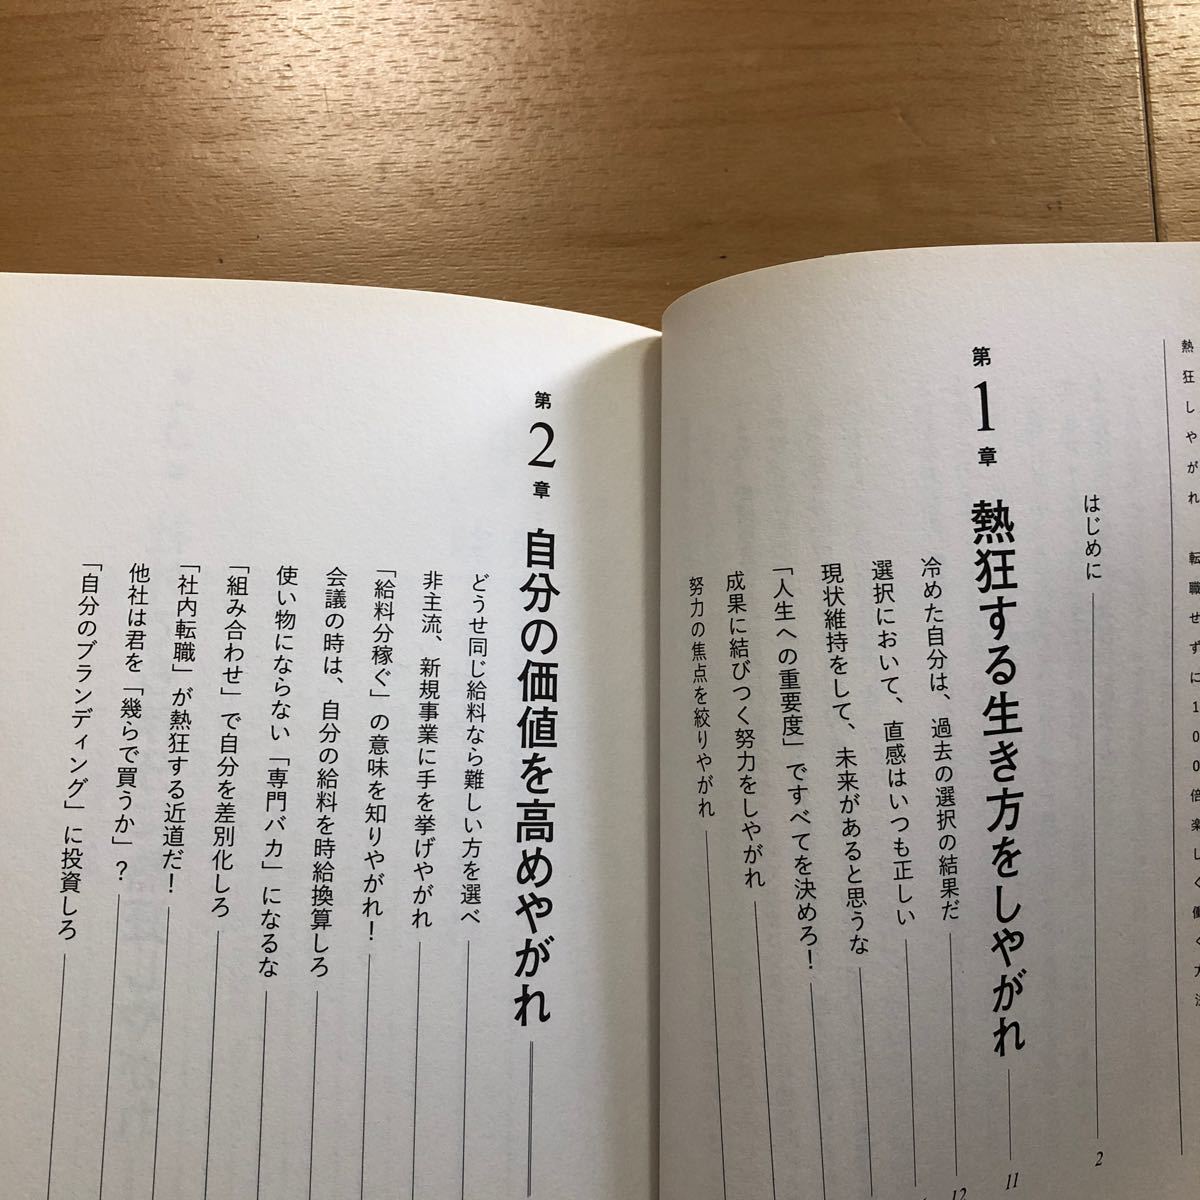 熱狂しやがれ 転職せずに100倍楽しく働く方法
はじめに 2
第1章 熱狂する生き方をしやがれ 11
冷めた自分は、過去の選択の結果だ 12
選択において、直感はいつも正しい
現状維持をして、未来があると思うな
「人生への重要度」ですべてを決めろ！
成果に結びつく努力をしやがれ
努力の焦点を絞りやがれ
第2章 自分の価値を高めやがれ
どうせ同じ給料なら難しい方を選べ
非主流、新規事業に手を挙げやがれ
「給料分稼ぐ」の意味を知りやがれ！
会議の時は、自分の給料を時給換算しろ
使い物にならない「専門バカ」になるな
「組み合わせ」で自分を差別化しろ
「社内転職」が熱狂する近道だ！
他社は君を「幾らで買うか」？
「自分のブランディング」に投資しろ